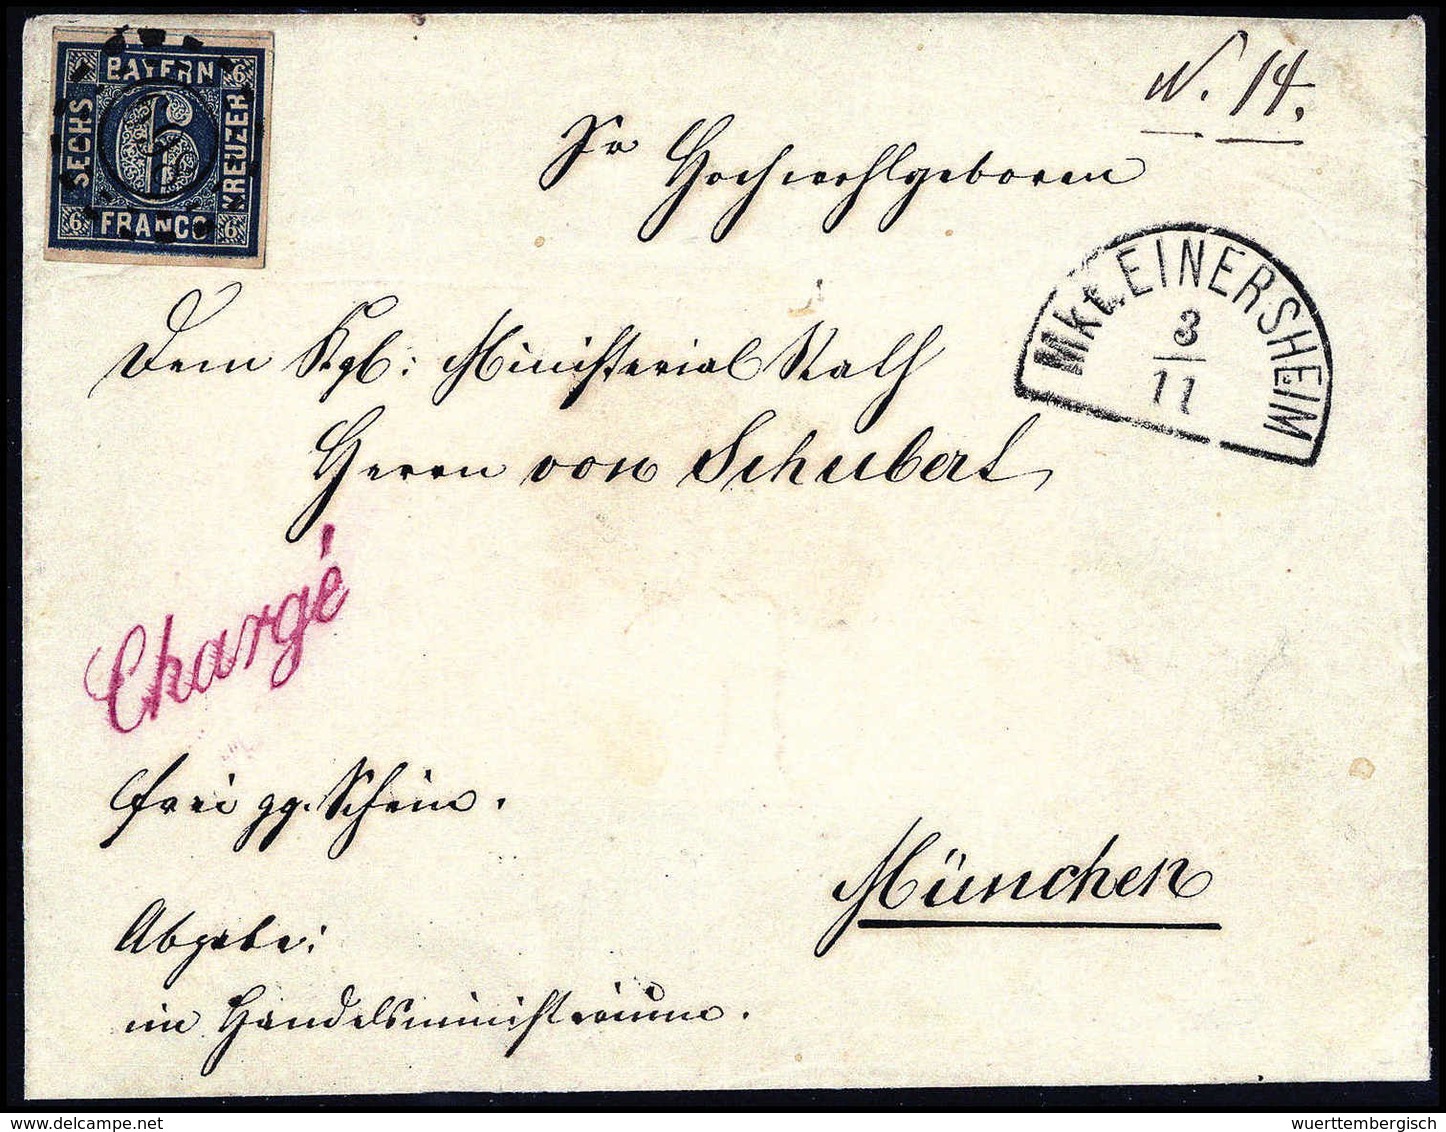 BAYERN
SECHS
KREUZER
FRANCO
6 6 6
N. 14.
Sr Hochwohlgeboren
Mkt. EINERSHEIM
3
11
Dem Kgl: Ministerial Rath
Herrn von Schubert
Chargé
frei gg. Schein.
München
Abgabe:
im Handelsministerium.
wuerttembergisch